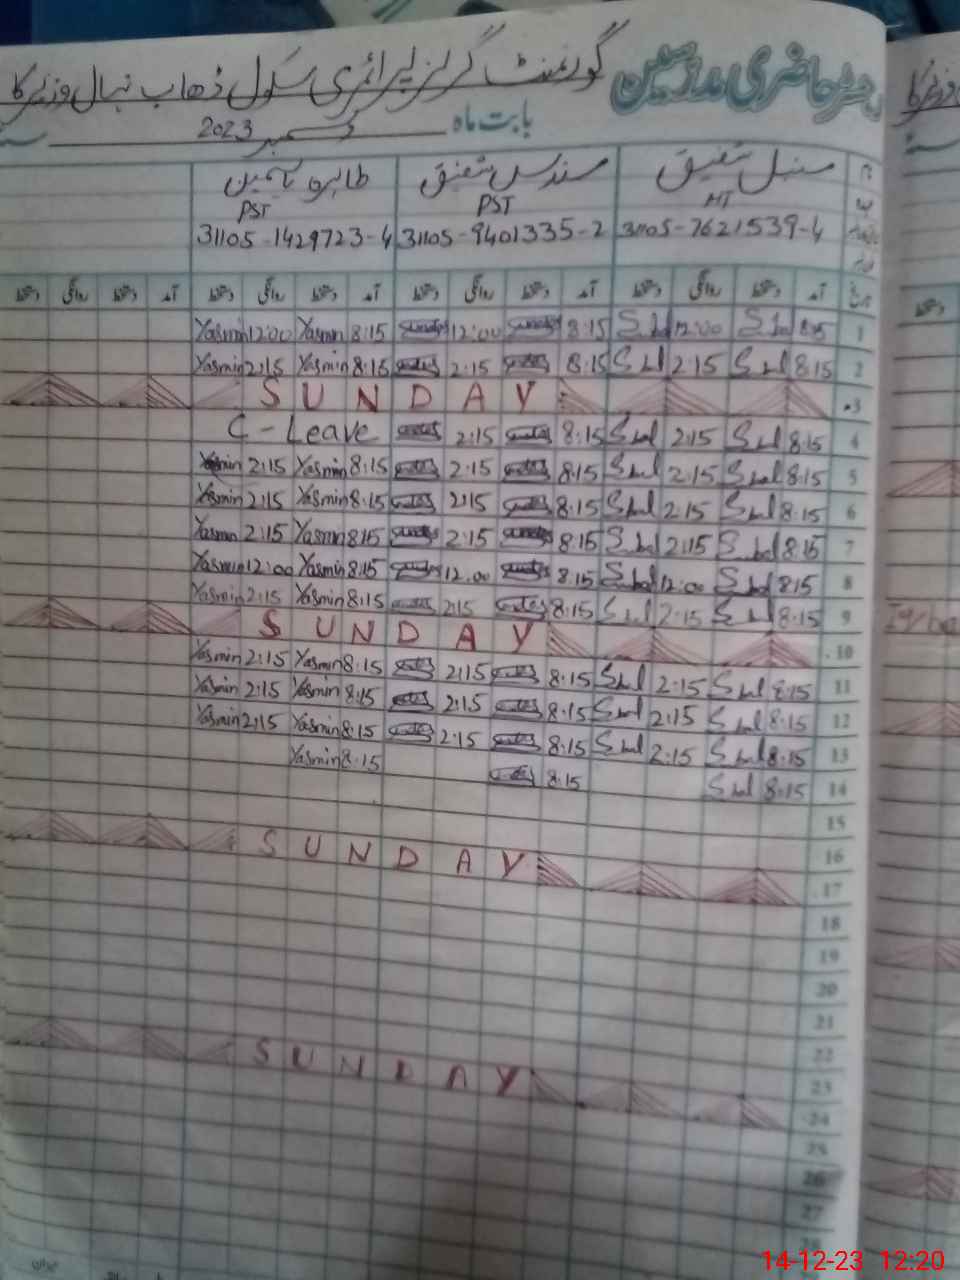 رجسٹر حاضری مدرسین گورنمنٹ گرلز پرائمری سکول ڈھاب نہال وزیرکا
بابت ماہ دسمبر 2023
سنبل شفیق سندس شفیق طاہرہ یاسمین
HT PST PST
31105-7621539-4 31105-9401335-2 31105-1429723-4
تاریخ آمد دستخط روانگی دستخط آمد دستخط روانگی دستخط آمد دستخط روانگی دستخط آمد دستخط روانگی دستخط
1 8:15 12:00 8:15 12:00 8:15 Yasmin 12:00 Yasmin
2 8:15 2:15 8:15 2:15 8:15 Yasmin 2:15 Yasmin
3 SUNDAY
4 8:15 2:15 8:15 2:15 C-Leave
5 8:15 2:15 8:15 2:15 8:15 Yasmin 2:15 Yasmin
6 8:15 2:15 8:15 2:15 8:15 Yasmin 2:15 Yasmin
7 8:15 2:15 8:15 2:15 8:15 Yasmin 2:15 Yasmin
8 8:15 12:00 8:15 12:00 8:15 Yasmin 12:00 Yasmin
9 8:15 2:15 8:15 2:15 8:15 Yasmin 2:15 Yasmin
10 SUNDAY
11 8:15 2:15 8:15 2:15 8:15 Yasmin 2:15 Yasmin
12 8:15 2:15 8:15 2:15 8:15 Yasmin 2:15 Yasmin
13 8:15 2:15 8:15 2:15 8:15 Yasmin 2:15 Yasmin
14 8:15 8:15 8:15 Yasmin
15
16
17 SUNDAY
18
19
20
21
22
23
24 SUNDAY
25
26
27
28
14-12-23 12:20